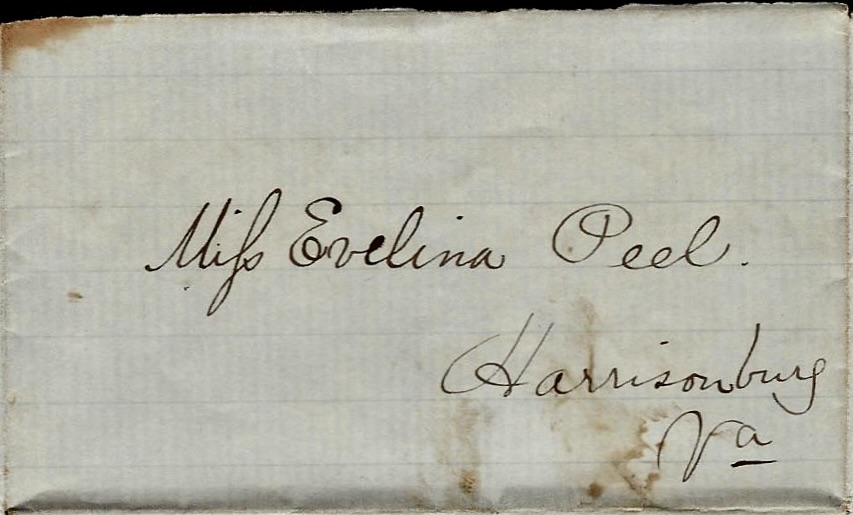 Miſs Evelina Peel.
Harrisonburg
Va